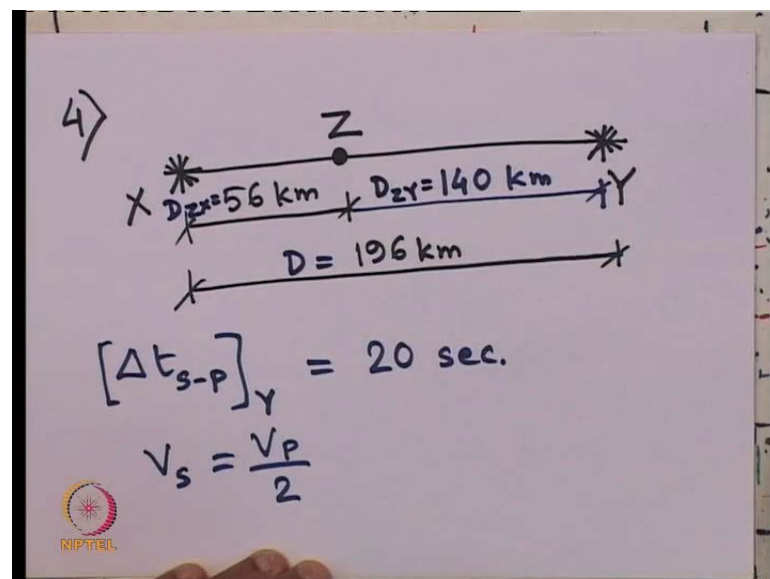 4)
Z
X Y
D_ZX=56 km D_ZY=140 km
D = 196 km
[Δt_s-p]_Y = 20 sec.
V_s = V_P/2
NPTEL